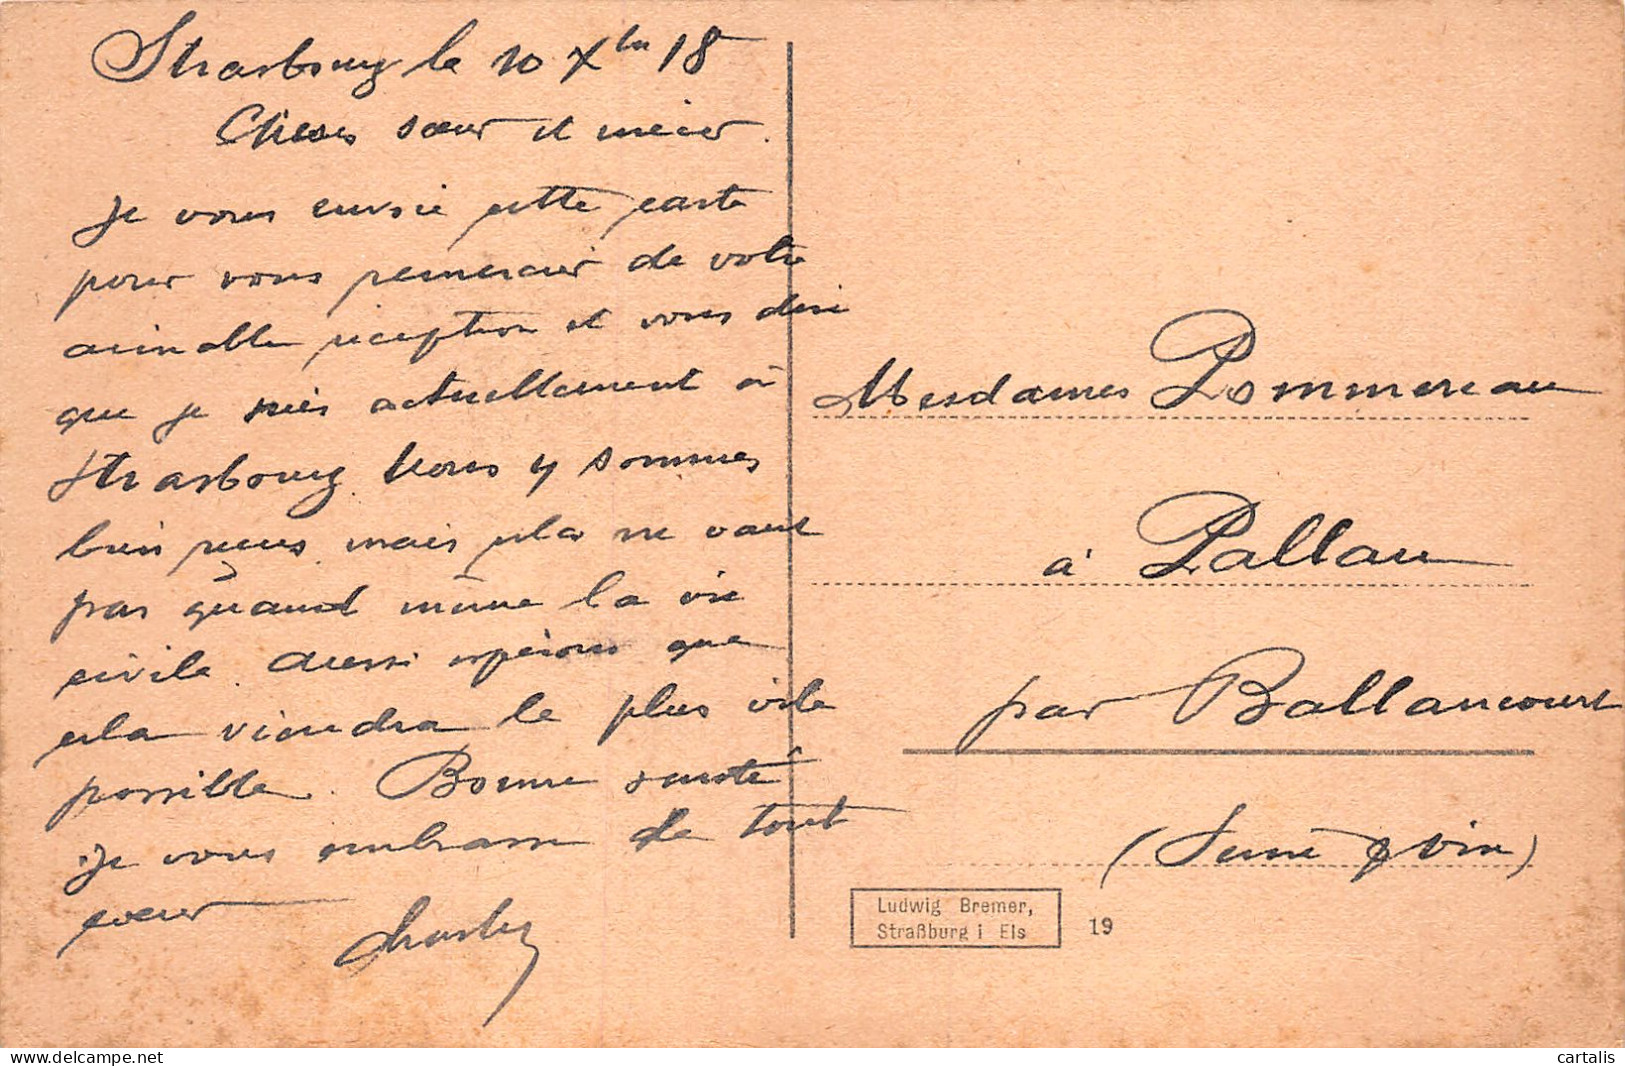 Strasbourg le 10 Xbre 18
Chères sœur et nièces
Je vous envoie cette carte
pour vous remercier de votre
aimable réception et vous dire
que je suis actuellement à
Strasbourg Nous y sommes
bien reçus mais cela ne vaut
pas quand même la vie
civile. Aussi espérons que
cela viendra le plus vite
possible. Bonne santé
Je vous embrasse de tout
cœur
Charles
Mesdames Pommereau
à Pallau
par Ballancourt
(Seine & Oise)
Ludwig Bremer,
Straßburg i Els
19
cartalis